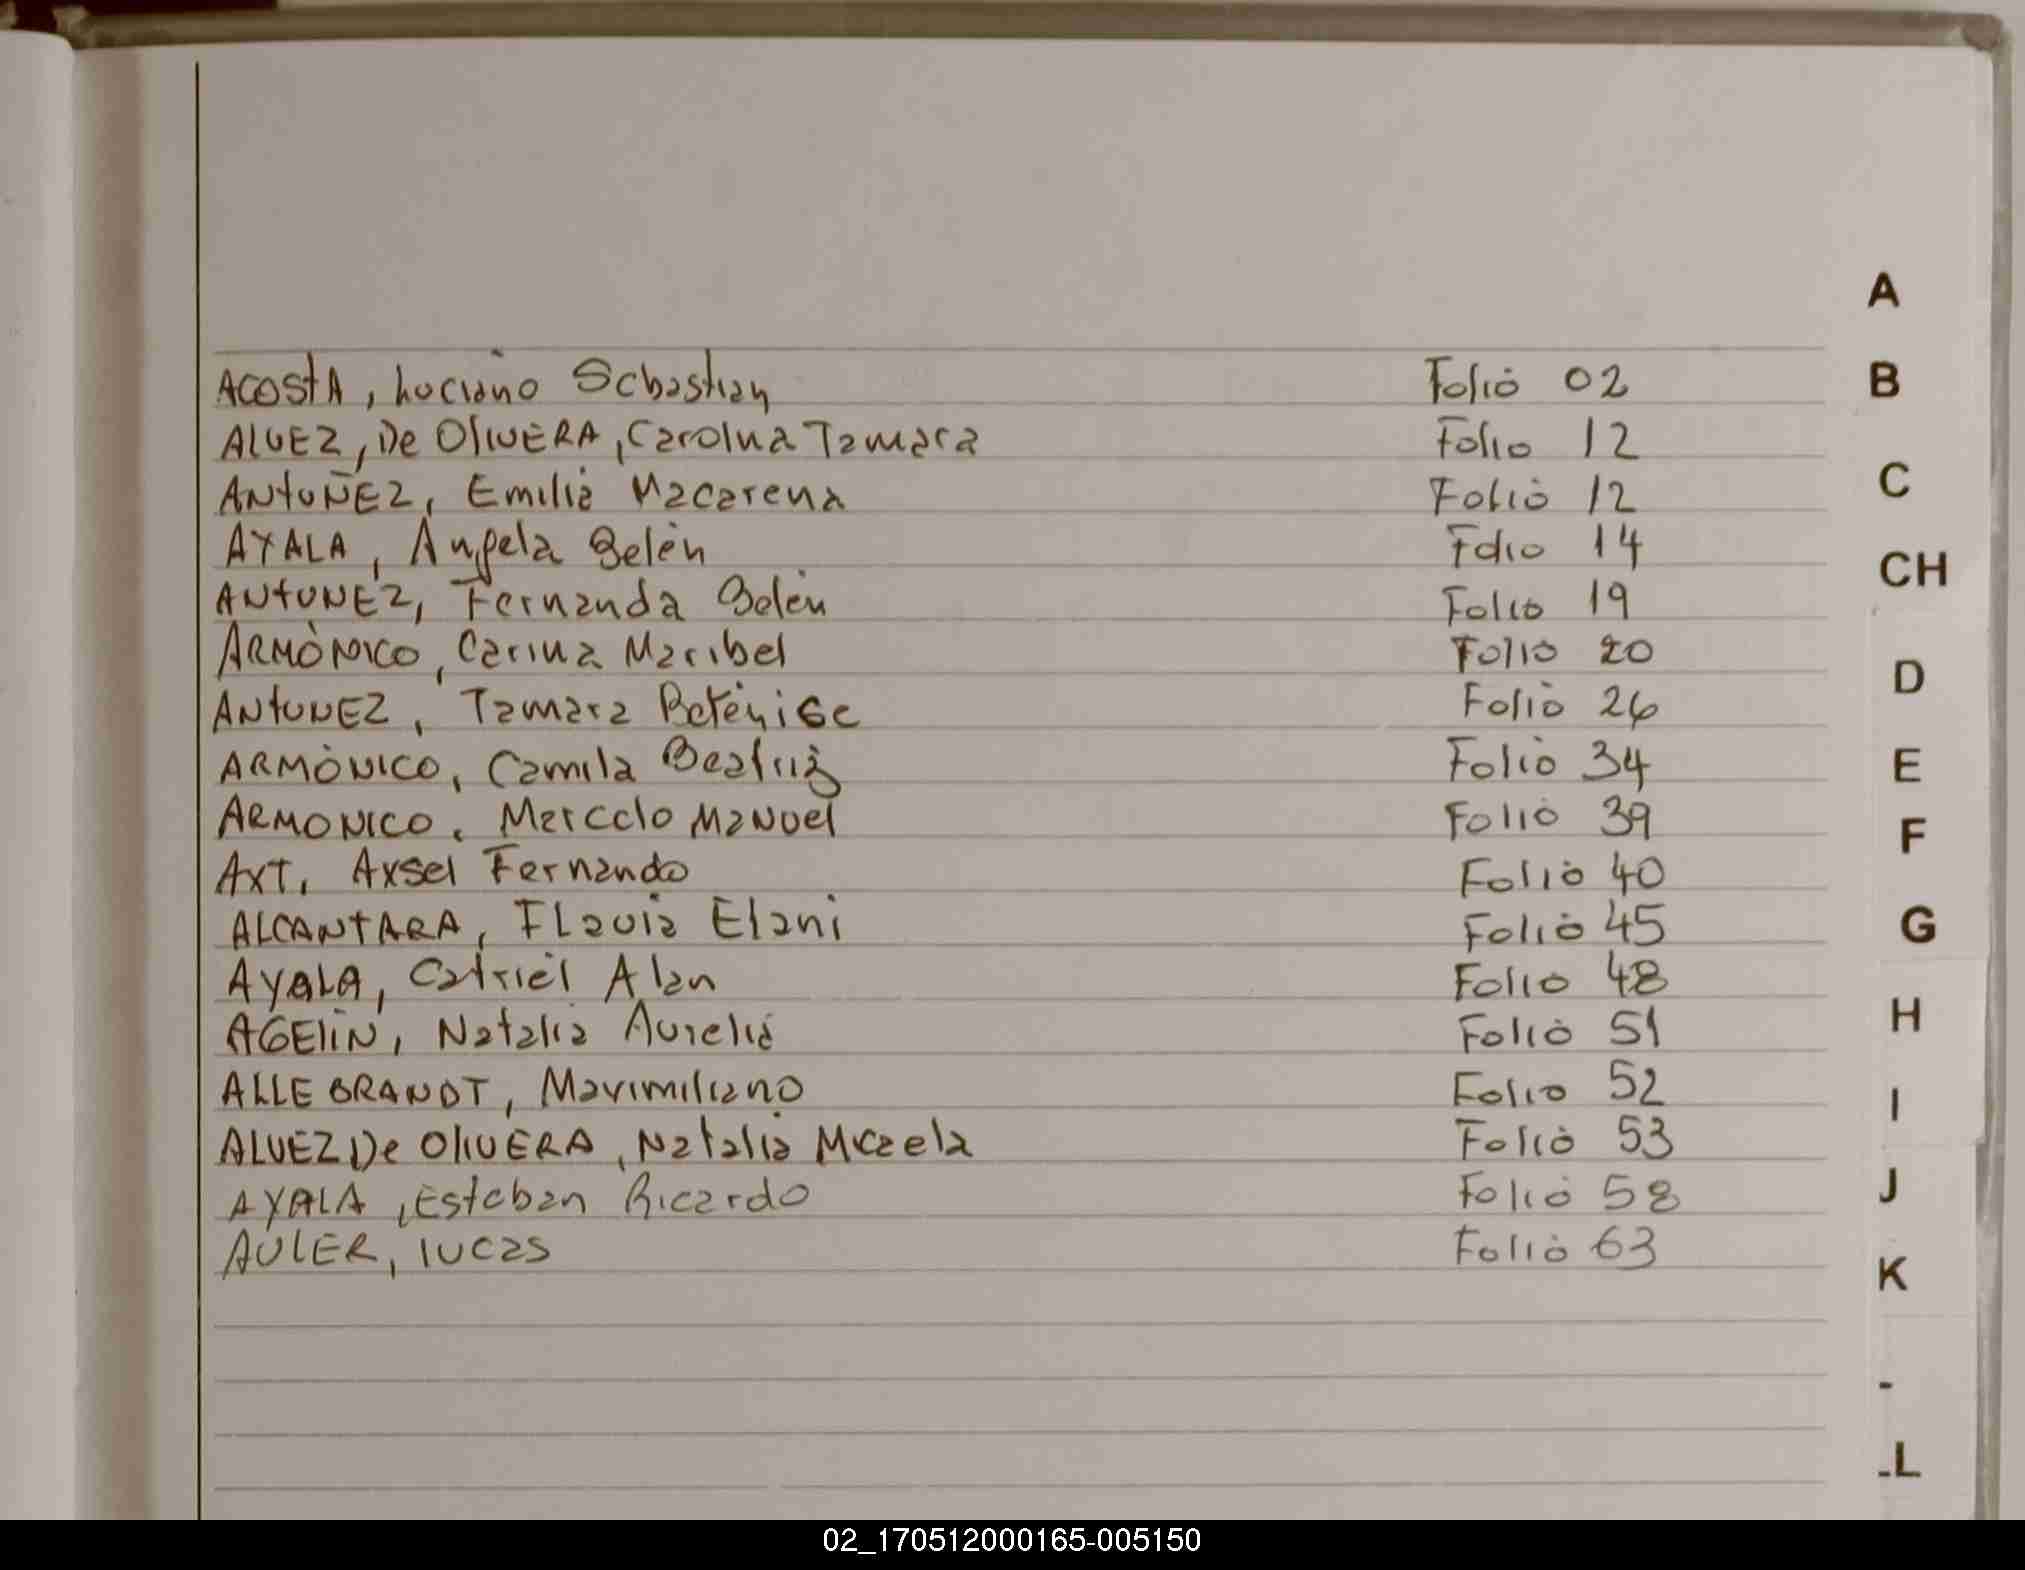 A
ACOSTA, Luciano Sebastian Folio 02
B
ALVEZ, De OliVERA, Carolina Tamara Folio 12
ANTUÑEZ, Emilia Macarena Folio 12
C
AYALA, Angela Belén Folio 14
CH
ANTUNEZ, Fernanda Belén Folio 19
ARMÓNICO, Carina Maribel Folio 20
D
ANTUNEZ, Tamara Beténise Folio 26
ARMÓNICO, Camila Beatriz Folio 34
E
ARMONICO, Marcelo Manuel Folio 39
F
AXT, Axsel Fernando Folio 40
ALCANTARA, Flavia Elani Folio 45
G
AYALA, Catriel Alan Folio 48
AGEliN, Natalia Aurelia Folio 51
H
ALLEBRANDT, Maximiliano Folio 52
I
ALVEZ De OliVERA, Natalia Micaela Folio 53
J
AYALA, Esteban Ricardo Folio 58
AULER, lucas Folio 63
K
-
-L
02_170512000165-005150